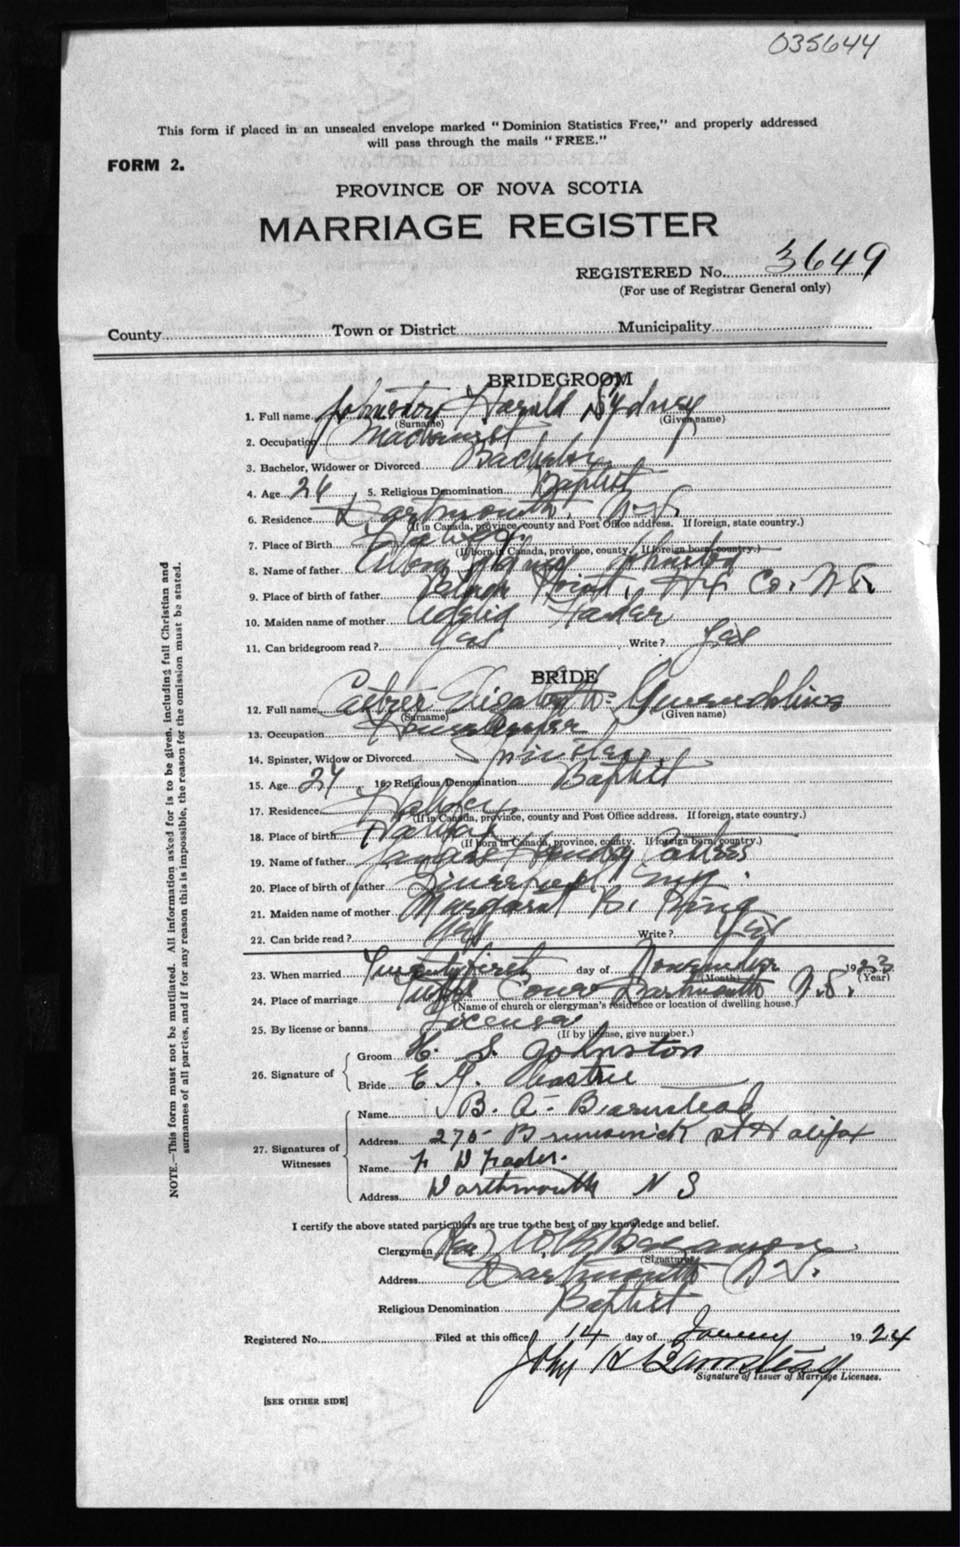 035644
This form if placed in an unsealed envelope marked "Dominion Statistics Free," and properly addressed
will pass through the mails "FREE."
FORM 2.
PROVINCE OF NOVA SCOTIA
MARRIAGE REGISTER
REGISTERED No. 3649
(For use of Registrar General only)
County Town or District Municipality
BRIDEGROOM
1. Full name Johnston Harold Sydney
(Surname) (Given name)
2. Occupation Machinist
3. Bachelor, Widower or Divorced Bachelor
4. Age 26 5. Religious Denomination Baptist
6. Residence Dartmouth, N.S.
(If in Canada, province, county and Post Office address. If foreign, state country.)
7. Place of Birth Halifax
(If born in Canada, province, county. If foreign born, country.)
8. Name of father Johnston
9. Place of birth of father Point, Hx Co. N.S.
10. Maiden name of mother Fader
11. Can bridegroom read? Yes Write? Yes
BRIDE
12. Full name Elizabeth Gwendoline
(Surname) (Given name)
13. Occupation
14. Spinster, Widow or Divorced Spinster
15. Age 24 16. Religious Denomination Baptist
17. Residence Halifax
(If in Canada, province, county and Post Office address. If foreign, state country.)
18. Place of birth Halifax
(If born in Canada, province, county. If foreign born, country.)
19. Name of father Henry
20. Place of birth of father Liverpool Eng.
21. Maiden name of mother Margaret King
22. Can bride read? Yes Write? Yes
23. When married Twenty first day of November 1923
(Month) (Year)
24. Place of marriage Tufts Cove Dartmouth N.S.
(Name of church or clergyman's residence or location of dwelling house.)
25. By license or banns License
(If by license, give number.)
26. Signature of
Groom H. S. Johnston
Bride E. G.
27. Signatures of Witnesses
Name B. A.
Address 275 Brunswick st Halifax
Name F D Fader.
Address Darthmouth N S
I certify the above stated particulars are true to the best of my knowledge and belief.
Clergyman (Rev)
(Signature)
Address Dartmouth N.S.
Religious Denomination Baptist
Registered No. Filed at this office 14 day of January 1924
John
Signature of Issuer of Marriage Licenses.
[SEE OTHER SIDE]
NOTE.—This form must not be mutilated. All information asked for is to be given, including full Christian and
surnames of all parties, and if for any reason this is impossible, the reason for the omission must be stated.